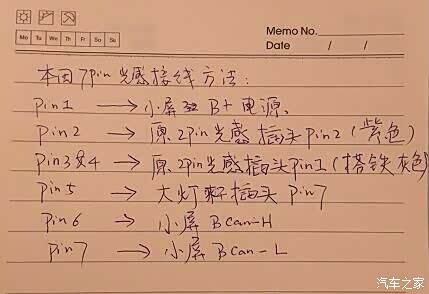 Memo No.
Mo Tu We Th Fr Sa Su
Date / /
本田7pin光感接线方法:
pin1 → 小屏 B+ 电源、
pin2 → 原2pin光感插头pin2(紫色)
pin3&4 → 原2pin光感插头pin1(搭铁灰色)
pin5 → 大灯 插头 pin7
pin6 → 小屏 Bcan-H
pin7 → 小屏 Bcan-L
汽车之家